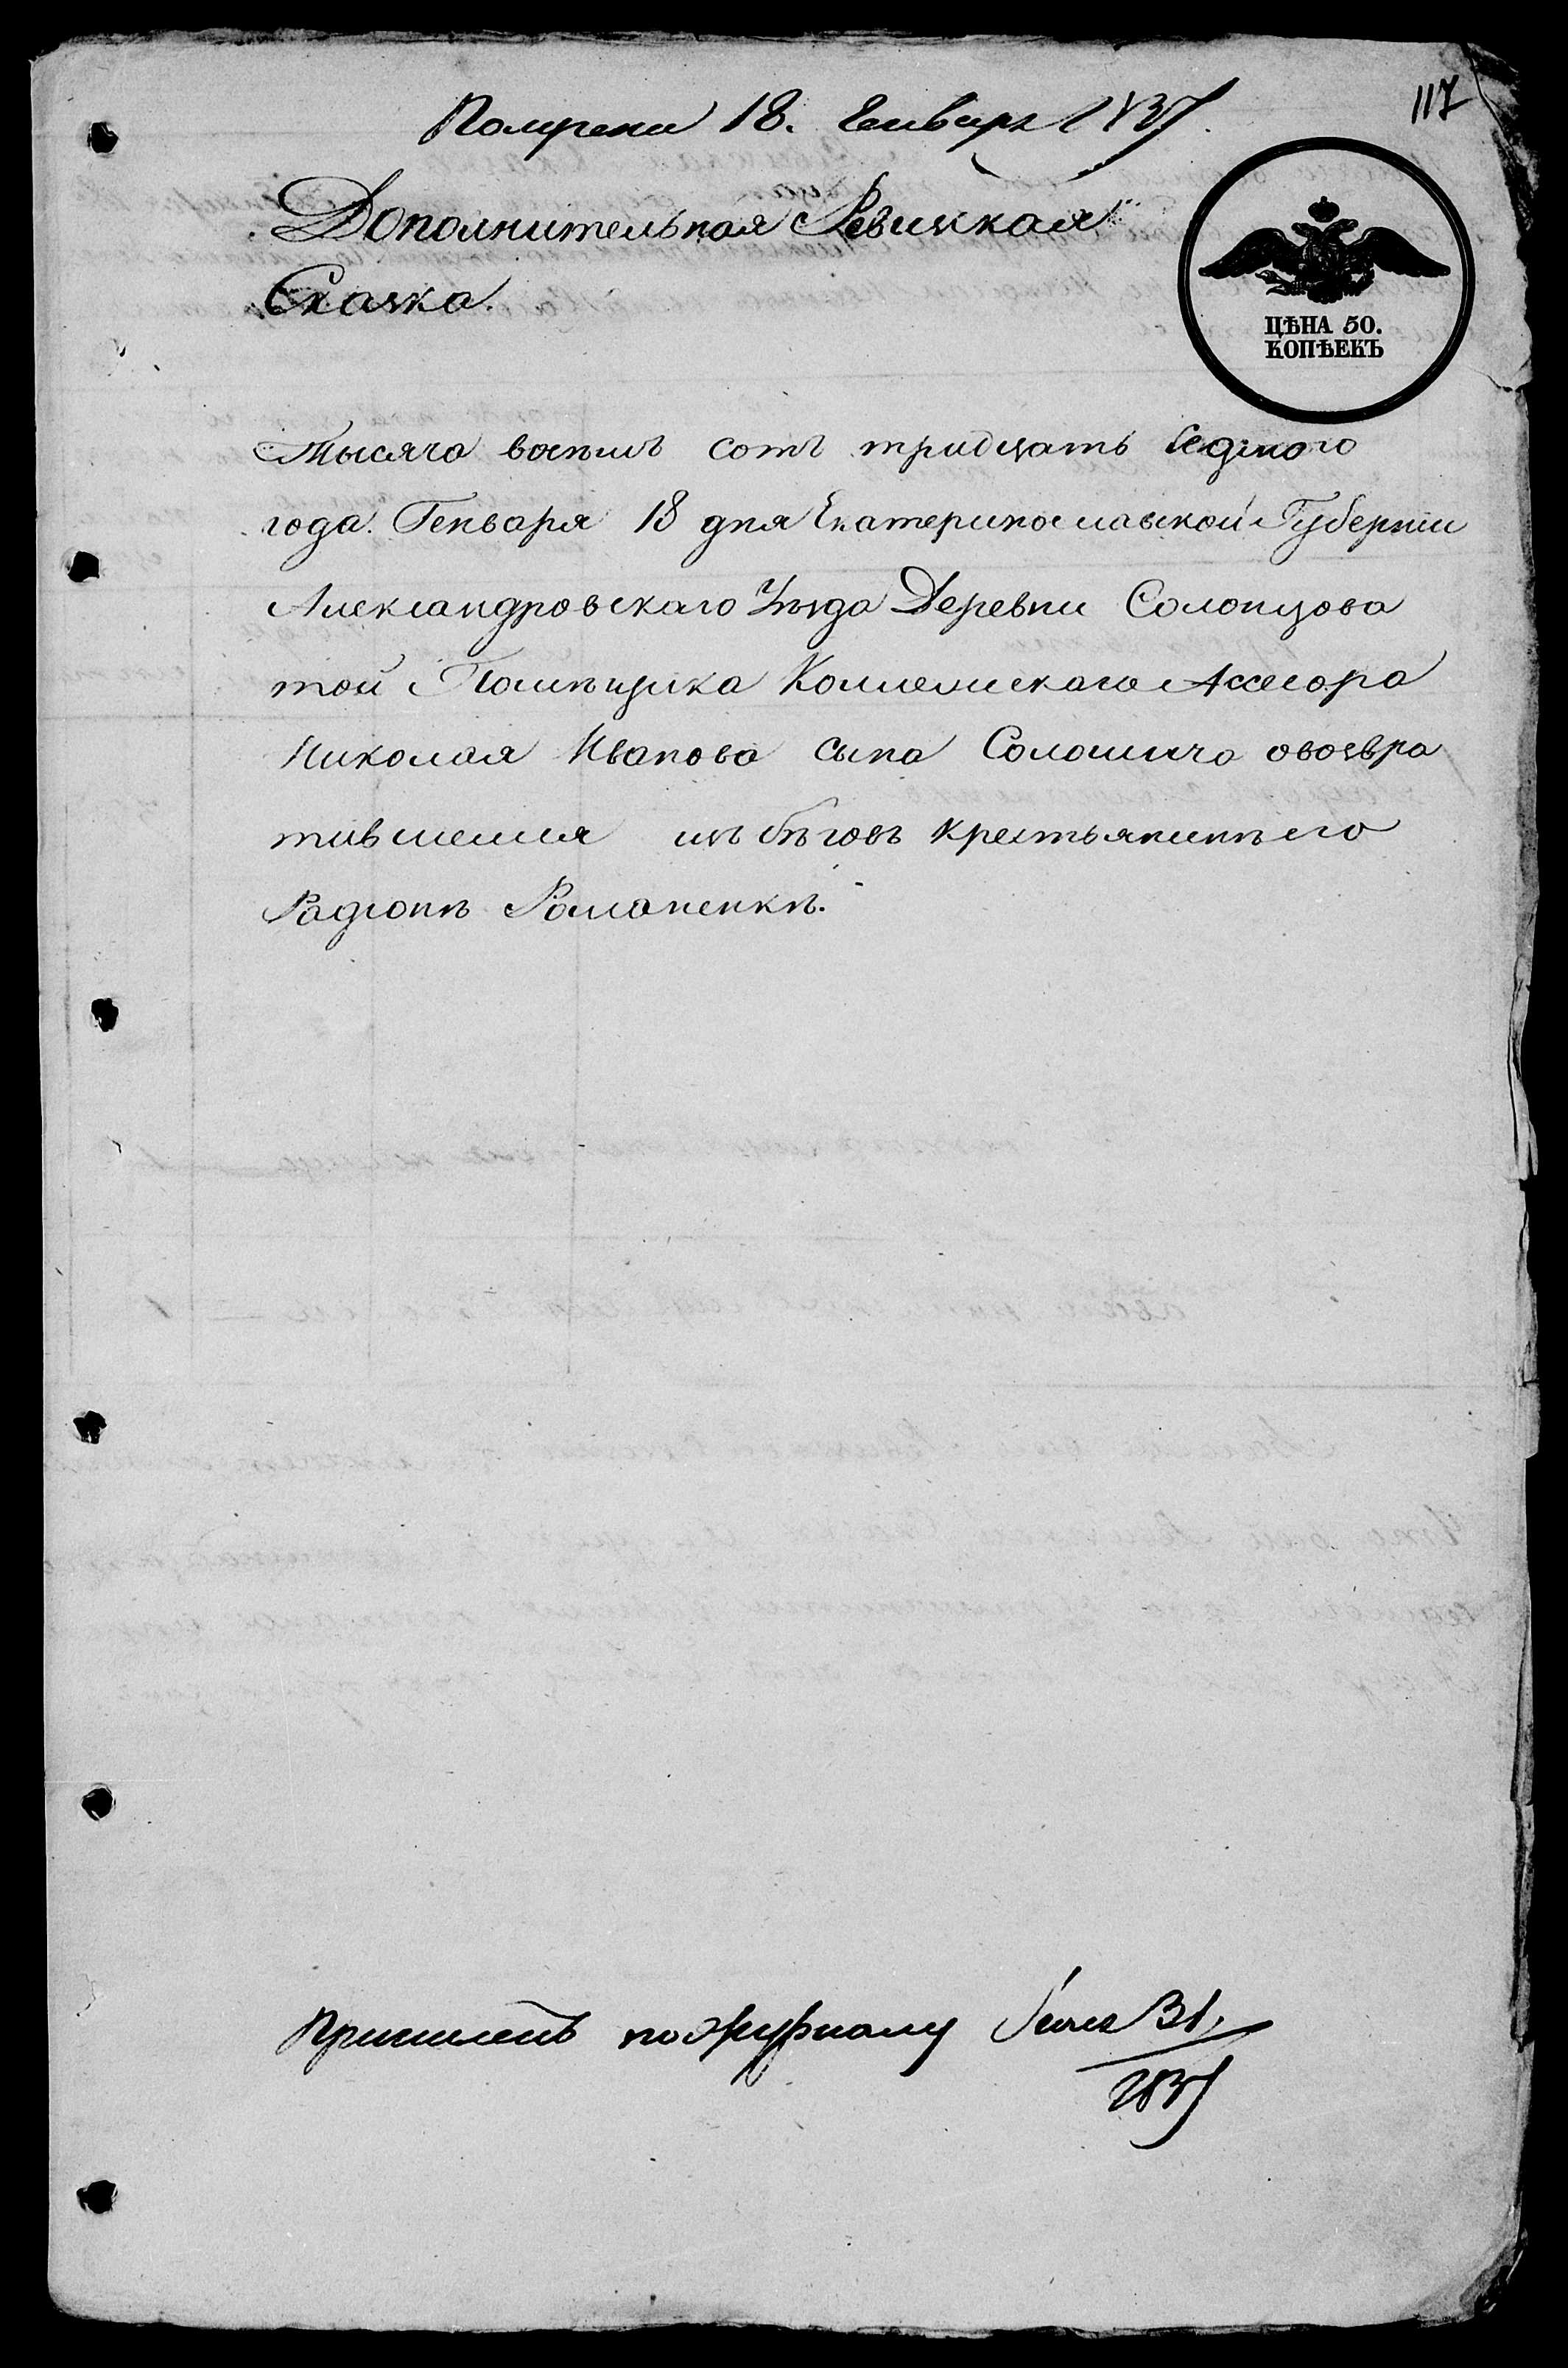 117
Получена 18. Генваря 1837.
Дополнительная Ревизкая
Сказка.
ЦѢНА 50.
КОПѢЕКЪ
Тысяча восемъ сотъ тридцать седмого
года. Генваря 18 дня Екатеринославской Губернии
Александровскаго Уѣзда Деревни Солонцова
той Помѣщика Коллежскаго Ассесора
Николая Иванова сына Солошича овозвра
тившемся изъ бѣговъ крестьянинѣ его
Радионѣ Романенкѣ.
по журналу 31.
1837